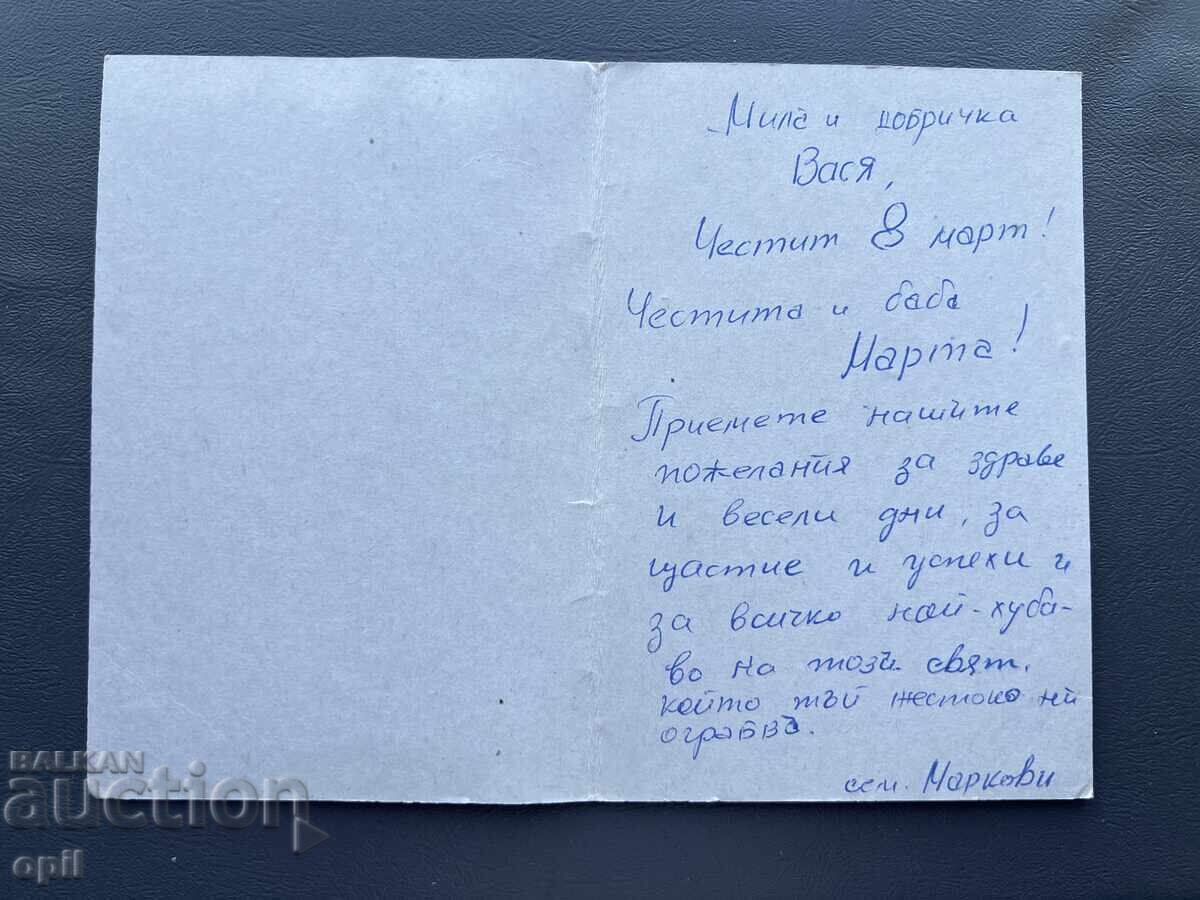 Мила и добричка
Вася,
Честит 8 март!
Честита и баба
Марта!
Приемете нашите
пожелания за здраве
и весели дни, за
щастие и успехи и
за всичко най-хуба-
во на този свят,
който тъй жестоко ни
ограбва.
сем. Маркови
BALKAN
auction
opil